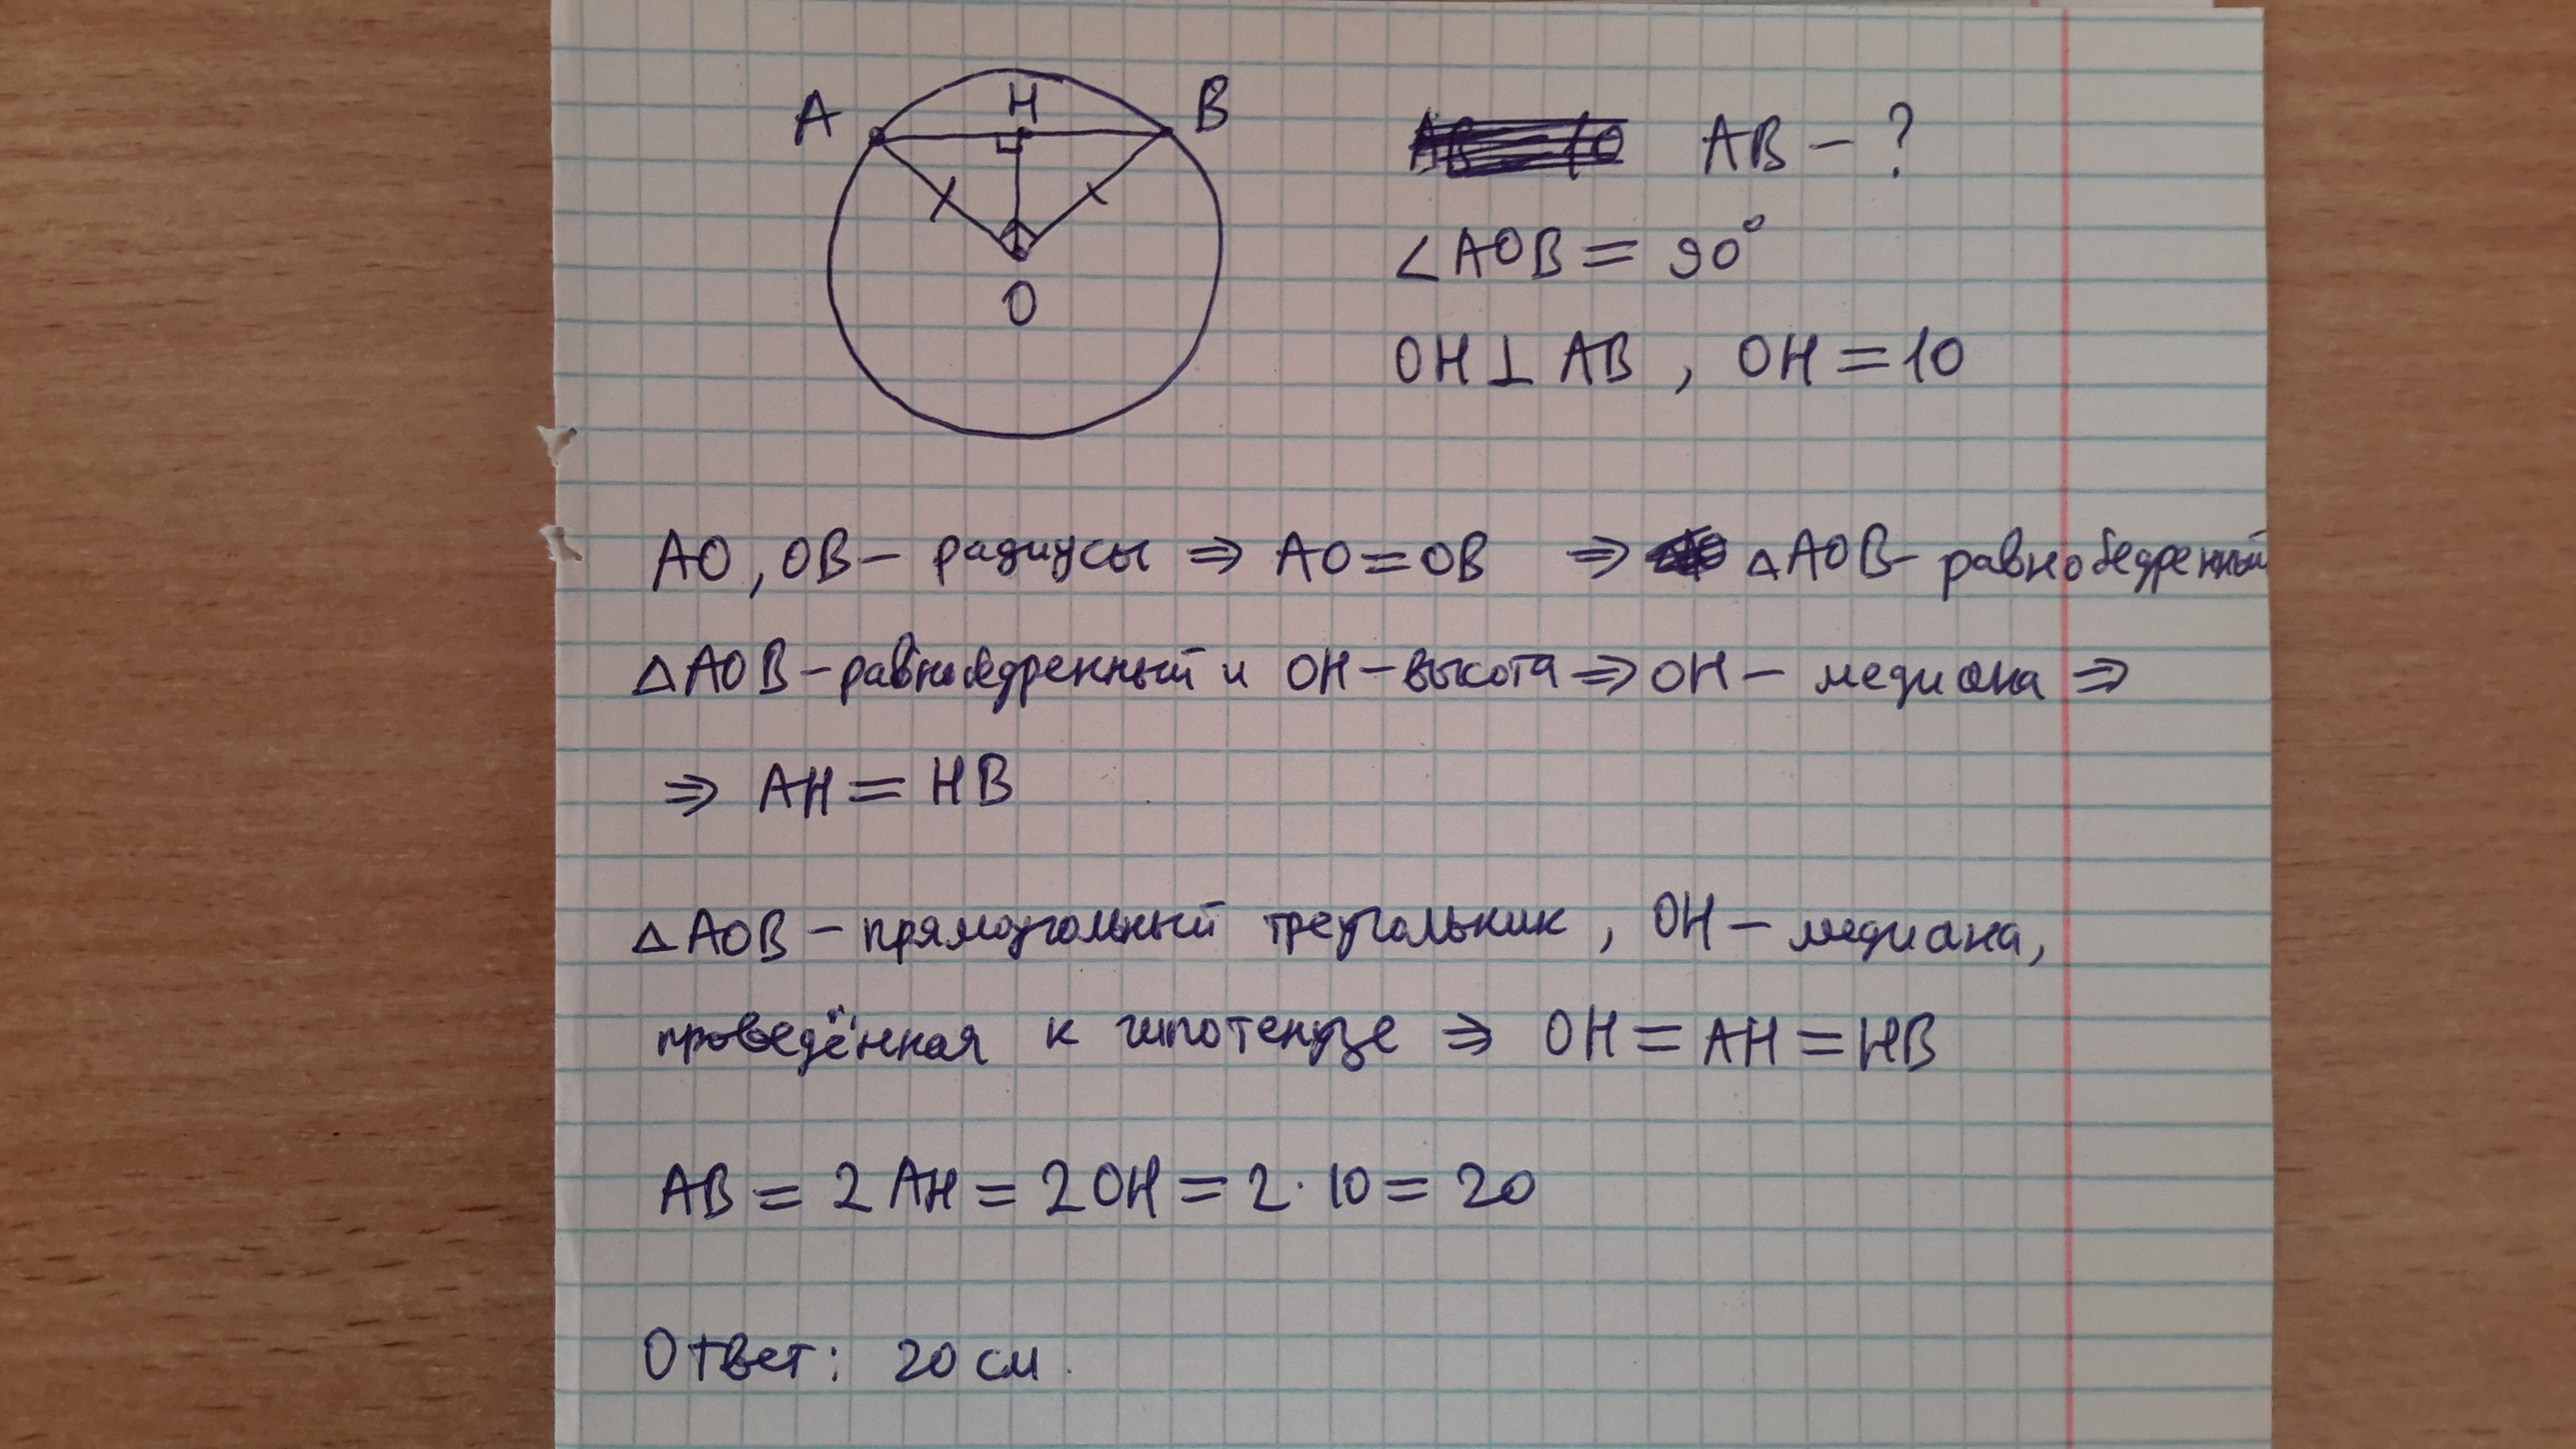 A H B
O
AB – ?
∠AOB = 90°
OH ⊥ AB , OH = 10
AO , OB – радиусы ⇒ AO = OB ⇒ △AOB – равнобедренный
△AOB – равнобедренный и OH – высота ⇒ OH – медиана ⇒
⇒ AH = HB
△AOB – прямоугольный треугольник , OH – медиана ,
проведённая к гипотенузе ⇒ OH = AH = HB
AB = 2 AH = 2 OH = 2 · 10 = 20
Ответ : 20 см .